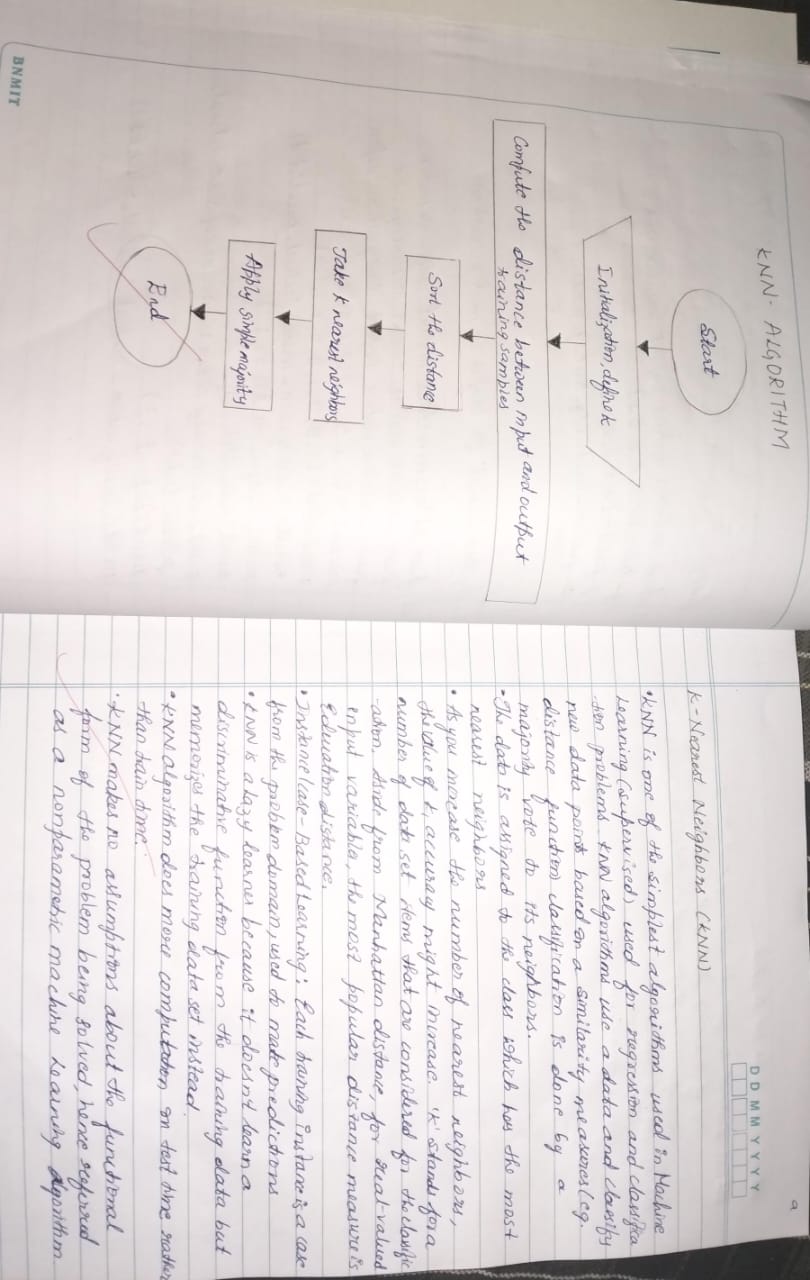 KNN- ALGORITHM
Start
Initialization, define k
Compute the distance between input and output
training samples
Sort the distance
Take k nearest neighbors
Apply simple majority
End
BNMIT
9
D D M M Y Y Y Y
K-Nearest Neighbors (KNN)
• KNN is one of the simplest algorithms used in Machine
Learning (supervised) used for regression and classifica
-tion problems. KNN algorithms use a data and classify
new data points based on a similarity measures (eg.
distance function) classification is done by a
majority vote to its neighbors.
• The data is assigned to the class which has the most
nearest neighbors
• As you increase the number of nearest neighbors,
the value of k, accuracy might increase. 'K' stands for a
number of data set items that are considered for the classific
-ation. Aside from Manhattan distance, for real-valued
input variable, the most popular distance measure is
Education distance.
• Instance/case-Based Learning: Each training instance is a case
from the problem domain, used to make predictions
• KNN is a lazy learner because it doesn't learn a
discriminative function from the training data but
memorizes the training data set instead.
• KNN algorithm does more computation on test time rather
than train time.
• KNN makes no assumptions about the functional
form of the problem being solved, hence referred
as a nonparametric machine Learning algorithm